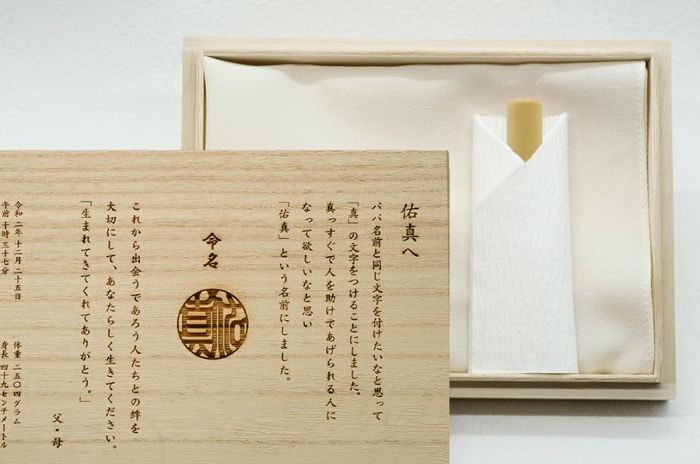 佑真へ
パパ名前と同じ文字を付けたいなと思って
「真」の文字をつけることにしました。
真っすぐで人を助けてあげられる人に
なって欲しいなと思い
「佑真」という名前にしました。
命名
佑真
これから出会うであろう人たちとの絆を
大切にして、あなたらしく生きてください。
「生まれてきてくれてありがとう。」
父・母
令和二年十二月二十五日
午前十時三十七分
体重 二五〇四グラム
身長 四十九センチメートル